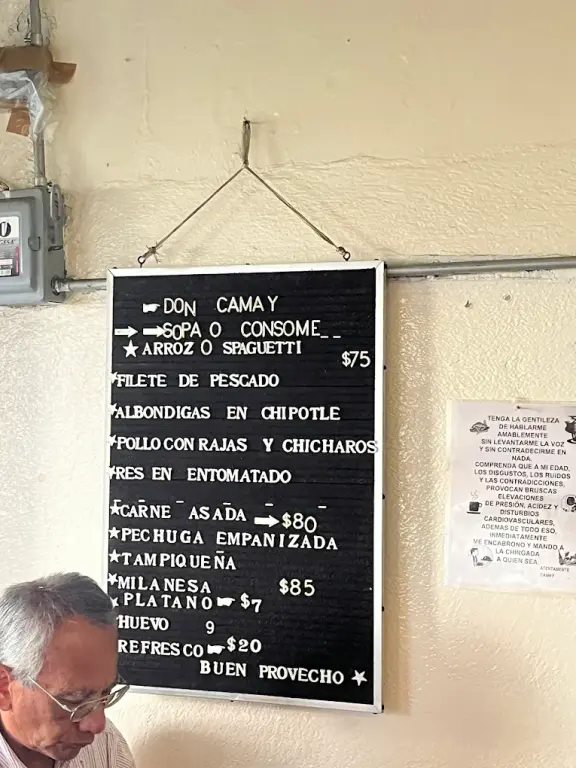 DON CAMAY
SOPA O CONSOME_ _
ARROZ O SPAGUETTI
$75
FILETE DE PESCADO
ALBONDIGAS EN CHIPOTLE
POLLO CON RAJAS Y CHICHAROS
RES EN ENTOMATADO
CARNE ASADA $80
PECHUGA EMPANIZADA
TAMPIQUEÑA
MILANESA $85
PLATANO $7
HUEVO 9
REFRESCO $20
BUEN PROVECHO
TENGA LA GENTILEZA
DE HABLARME
AMABLEMENTE
SIN LEVANTARME LA VOZ
Y SIN CONTRADECIRME EN
NADA.
COMPRENDA QUE A MI EDAD,
LOS DISGUSTOS, LOS RUIDOS
Y LAS CONTRADICCIONES,
PROVOCAN BRUSCAS
ELEVACIONES
DE PRESIÓN, ACIDEZ Y
DISTURBIOS
CARDIOVASCULARES,
ADEMAS DE TODO ESO,
INMEDIATAMENTE
ME ENCABRONO Y MANDO A
LA CHINGADA
A QUIEN SEA.
ATENTAMENTE